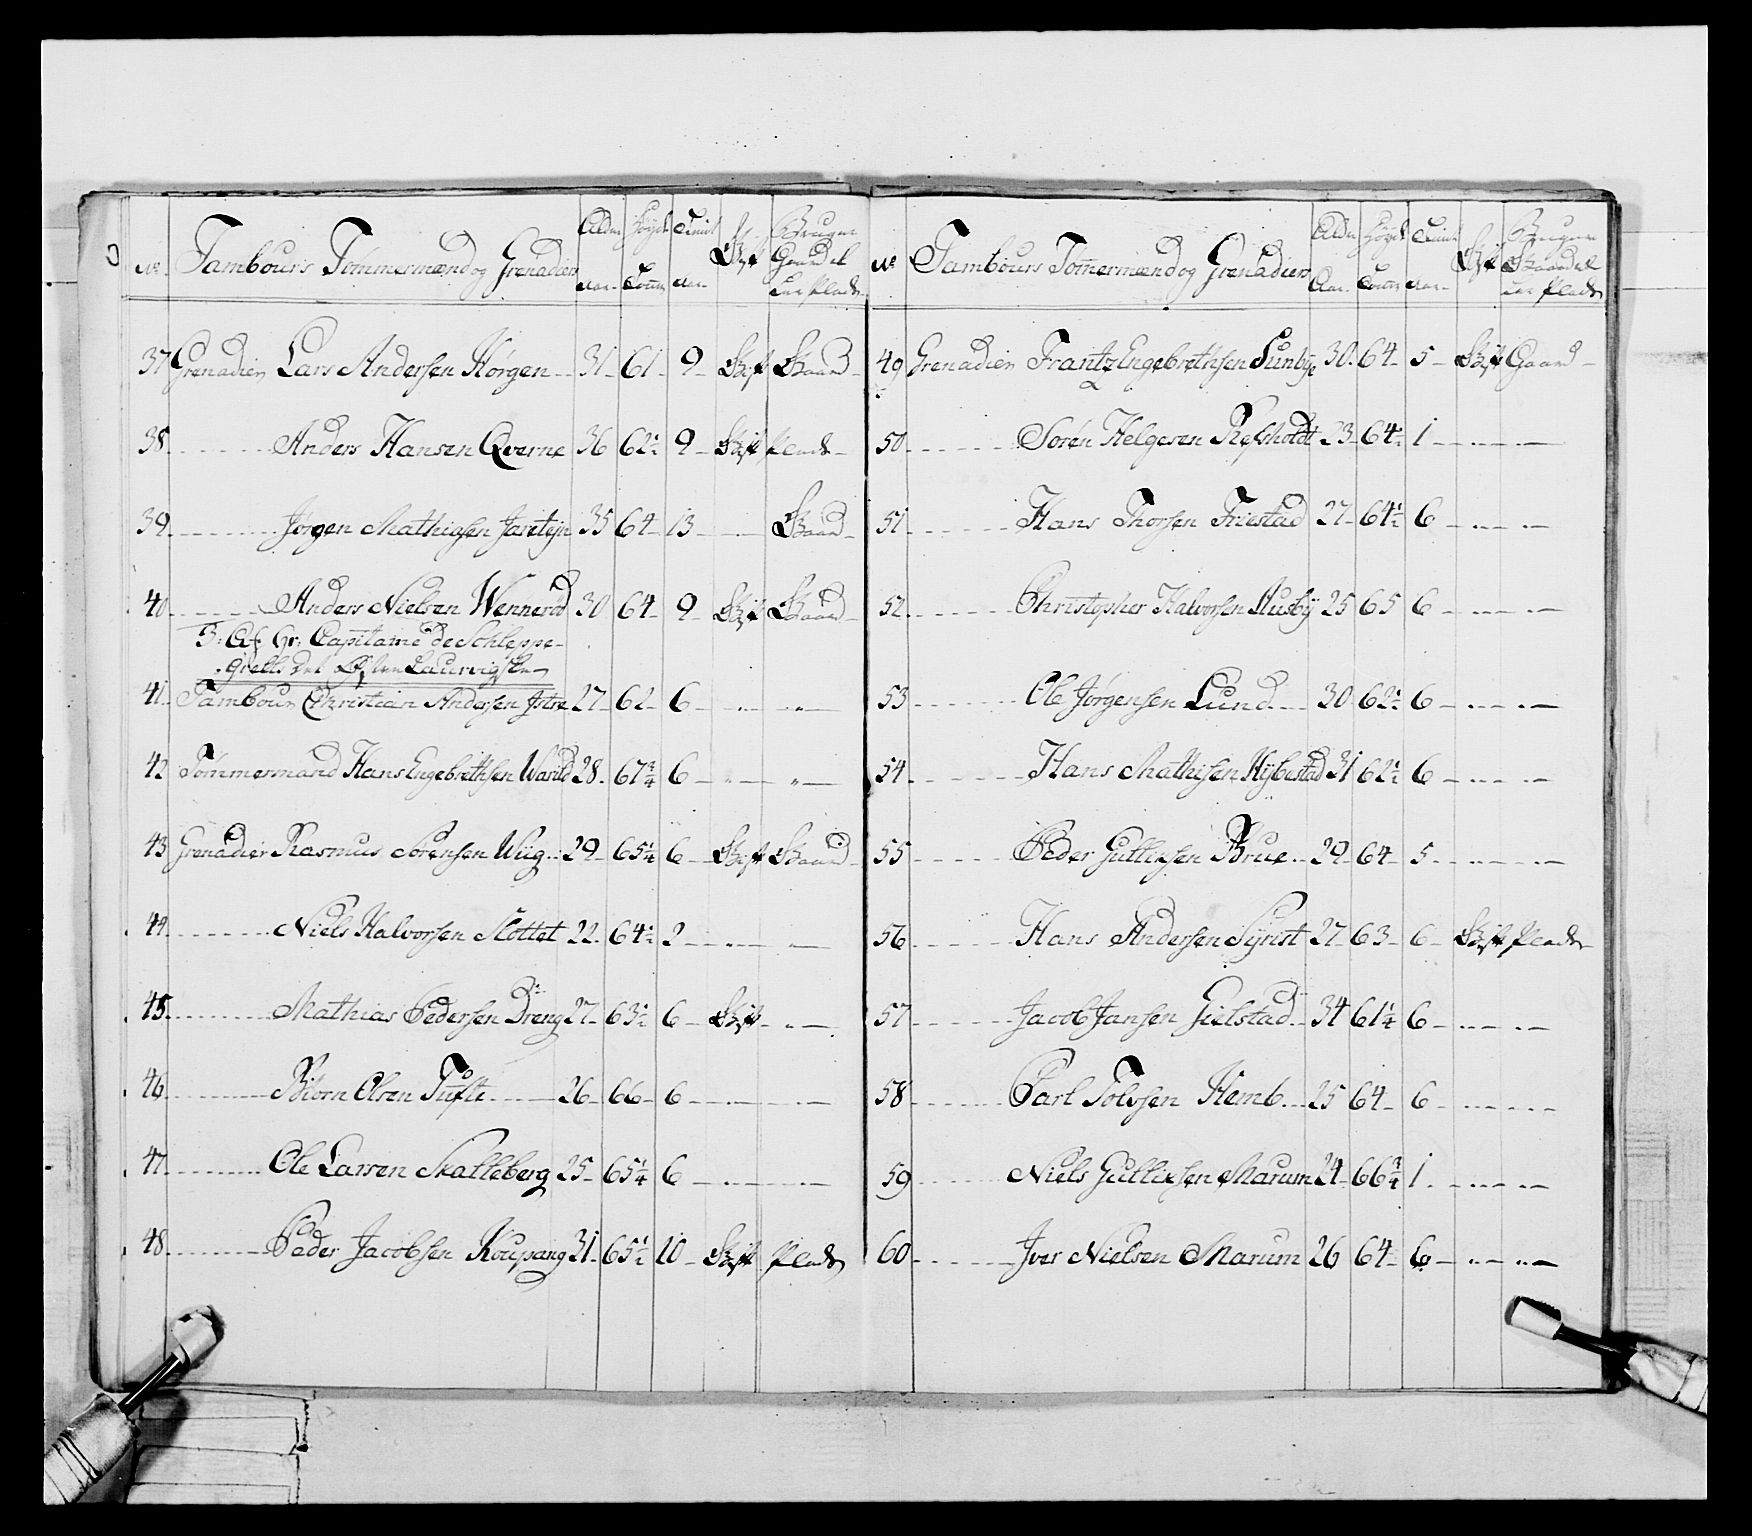 No Tambours Tømmermænd og Grenadiers Alder Aar Høyde Tomm Tieent Aar Gift Bruger Gaard el Plads
37 Grenadier Lars Andersen Hørgen 31 61 9 Gift Gaard
38 Anders Hansen Qverne 36 62½ 9 Gift Plads
39 Jørgen Mathiasen Jareteijn 35 64 13 - Gaard
40 Anders Nielsen Wennerød 30 64 9 Gift Gaard
3: Af Hr: Capitaine de Schleppe-
grells Det Laurvigske
41 Tambour Christian Andersen Istre 27 62 6 - " -
42 Tømmermand Hans Engebrethsen Warild 28 67¾ 6 - " - " -
43 Grenadier Rasmus Sørensen Wiig 29 65¼ 6 Gift Gaard
44 Niels Halvorsen Slottet 22 64½ 2 - -
45 Mathias Pedersen Dreng 27 63½ 6 Gift - " -
46 Biørn Olsen Tufte 26 66 6 - -
47 Ole Larsen Skalleberg 25 65¼ 6 - -
48 Peder Jacobsen Koupang 31 65½ 10 Gift Plads
No Tambours Tømmermænd og Grenadiers Alder Aar Høyde Tomm Tieent Aar Gift Bruger Gaard el Plads
49 Grenadier Frantz Engebrethsen Sunbÿe 30 64 5 Gift Gaard
50 Søren Helgesen Refsholdt 23 64½ 1 - " - " -
51 Hans Thorsen Friestad 27 64½ 6 - " - " -
52 Christopher Halvorsen Ausbÿ 25 65 6 - " - " -
53 Ole Jørgensen Lund 30 62½ 6 - " - " -
54 Hans Mathisen Hÿbestad 31 62½ 6 - " - " -
55 Peder Gullixsen Brue 29 64 5 - " - " -
56 Hans Andersen Syrist 27 63 6 Gift Plads
57 Jacob Jansen Gielstad 34 61¼ 6 - " - " -
58 Carl Tolvsen Hemb 25 64 6 - " - " -
59 Niels Gullixsen Marum 24 66¾ 1 - " - " -
60 Iver Nielsen Marum 26 64 6 - " - " -